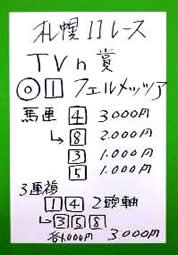 札幌11レース
TVh賞
◎ 1 フェルメッツァ
馬連 4 3000円
→8 2.000円
3 1.000円
5 1.000円
3連複
1 4 2頭軸
→3 5 8
各1,000円 3000円